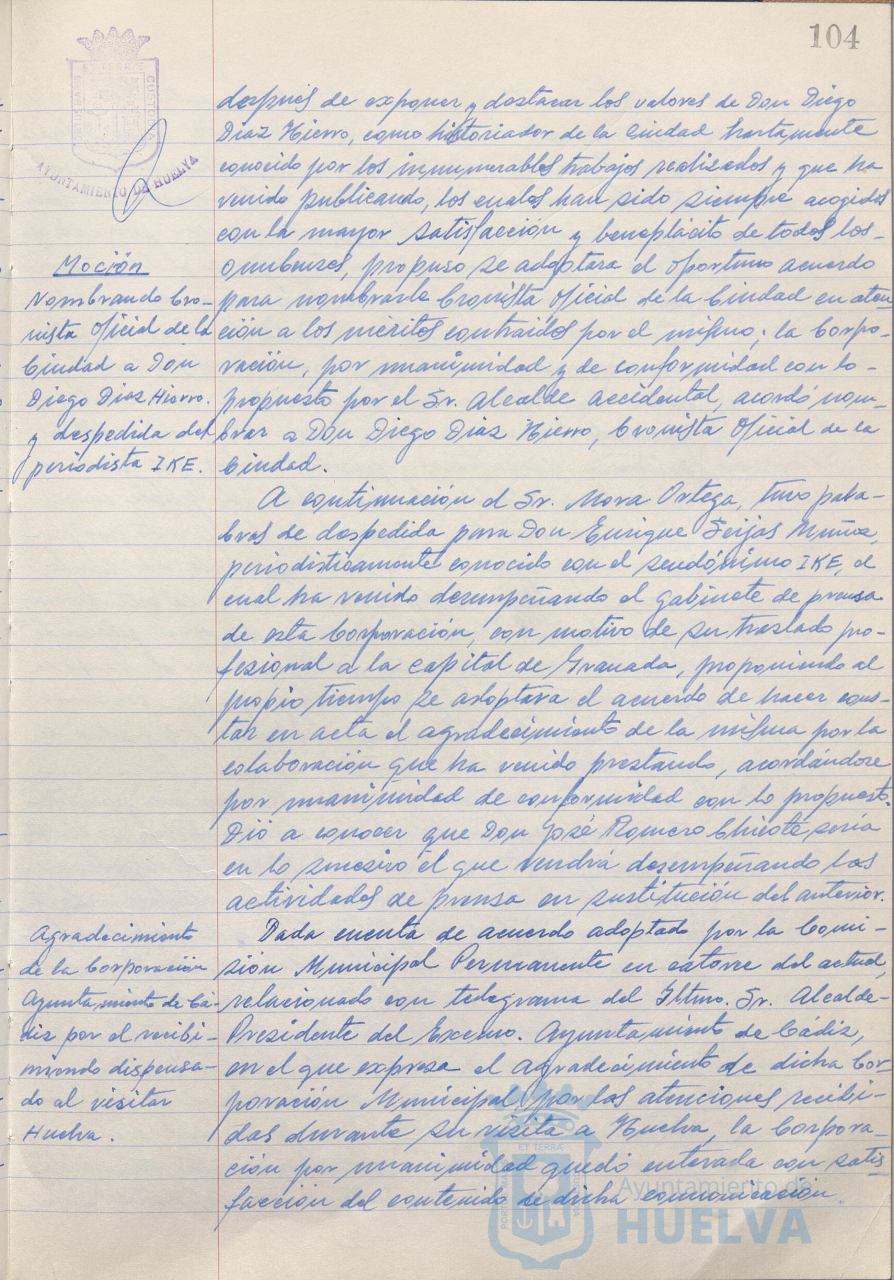 104
AYUNTAMIENTO DE HUELVA
después de exponer y destacar los valores de Don Diego
Diaz Hierro, como historiador de la Ciudad hartamente
conocido por los innumerables trabajos realizados y que ha
venido publicando, los cuales han sido siempre acogidos
con la mayor satisfacción y beneplácito de todos los-
onubenses, propuso se adoptara el oportuno acuerdo
para nombrarle Cronista Oficial de la Ciudad en aten
ción a los méritos contraidos por el mismo; la Corpo-
ración, por unanimidad y de conformidad con lo-
propuesto por el Sr. Alcalde accidental, acordó nom-
brar a Don Diego Diaz Hierro, Cronista Oficial de la
Ciudad.
Moción
Nombrando Cro-
nista Oficial de la
Ciudad a Don
Diego Diaz Hierro.
y despedida del
periodista IKE.
A continuación el Sr. Mora Ortega, tuvo pala-
bras de despedida para Don Enrique Seijas Muñoz,
periodisticamente conocido con el seudónimo IKE, el
cual ha venido desempeñando el gabinete de prensa
de esta Corporación, con motivo de su traslado pro-
fesional a la capital de Granada, proponiendo al
propio tiempo se adoptara el acuerdo de hacer cons-
tar en acta el agradecimiento de la misma por la
colaboración que ha venido prestando, acordándose
por unanimidad de conformidad con lo propuesto.
Dió a conocer que Don José Romero Chicote sería
en lo sucesivo el que vendrá desempeñando las
actividades de prensa en sustitución del anterior.
Agradecimiento
de la Corporación
Ayuntamiento de Cá-
diz por el recibi-
miendo dispensa-
do al visitar
Huelva.
Dada cuenta de acuerdo adoptado por la Comi-
sión Municipal Permanente en catorce del actual,
relacionado con telegrama del Iltmo. Sr. Alcalde-
Presidente del Excmo. Ayuntamiento de Cádiz,
en el que expresa el agradecimiento de dicha Cor
poración Municipal por las atenciones recibi-
das durante su visita a Huelva, la Corpora-
ción por unanimidad quedó enterada con satis
facción del contenido de dicha comunicación.
Ayuntamiento de
HUELVA